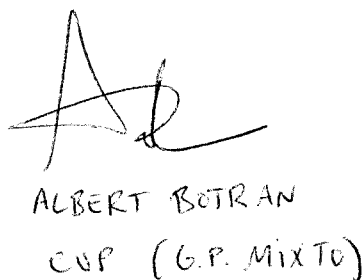 ALBERT BOTRAN
CUP (G.P. MIXTO)